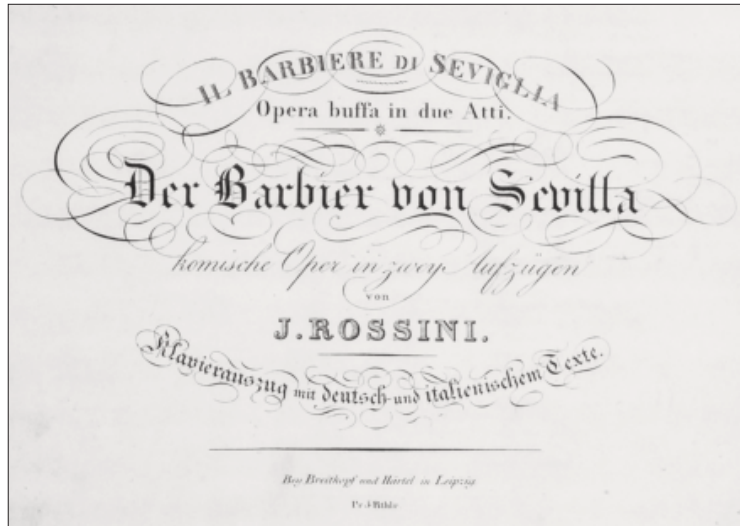 IL BARBIERE DI SEVIGLIA
Opera buffa in due Atti.
Der Barbier von Sevilla
komische Oper in zwey Aufzügen
von
J. ROSSINI.
Klavierauszug mit deutsch und italienischem Texte.
Bey Breitkopf und Härtel in Leipzig